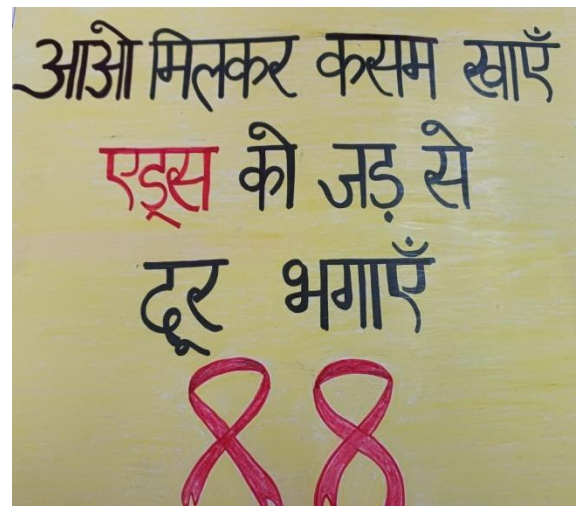 आओ मिलकर कसम खाएँ
एड्स को जड़ से
दूर भगाएँ